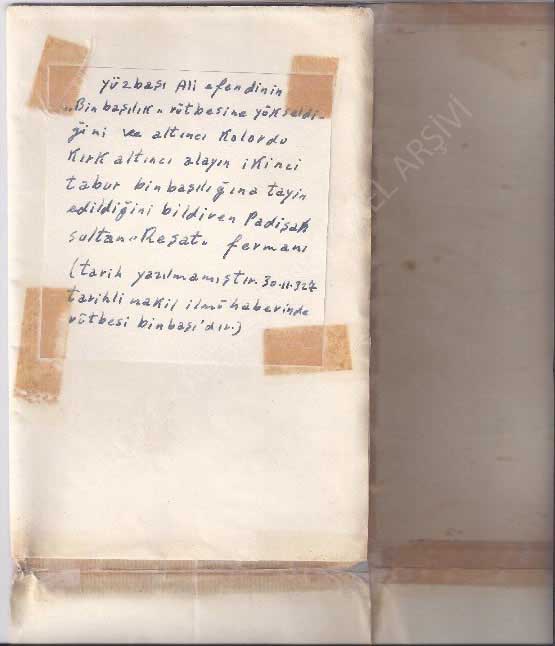 yüzbaşı Ali efendinin
"Binbaşılık" rütbesine yükseldi-
ğini ve altıncı Kolordu
Kırk altıncı alayın ikinci
tabur binbaşılığına tayin
edildiğini bildiren Padişah
sultan "Reşat" fermanı
(tarih yazılmamıştır. 30.11.327
tarihli nakil ilmühaberinde
rütbesi binbaşı'dır.)
EL ARŞİVİ